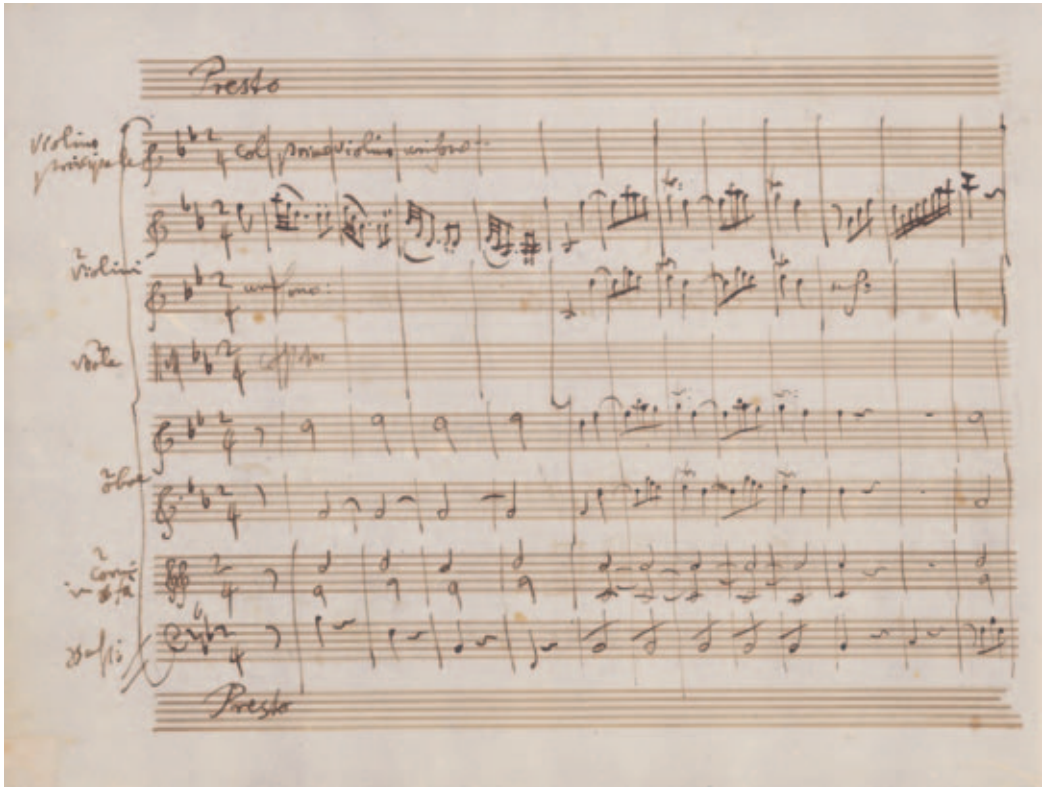 Presto
Violino
principale
col primo violino unisono
2 violini
unisono:
viole
col Basso
unis:
2 oboe
2 Corni
in B fa
Bassi
Presto